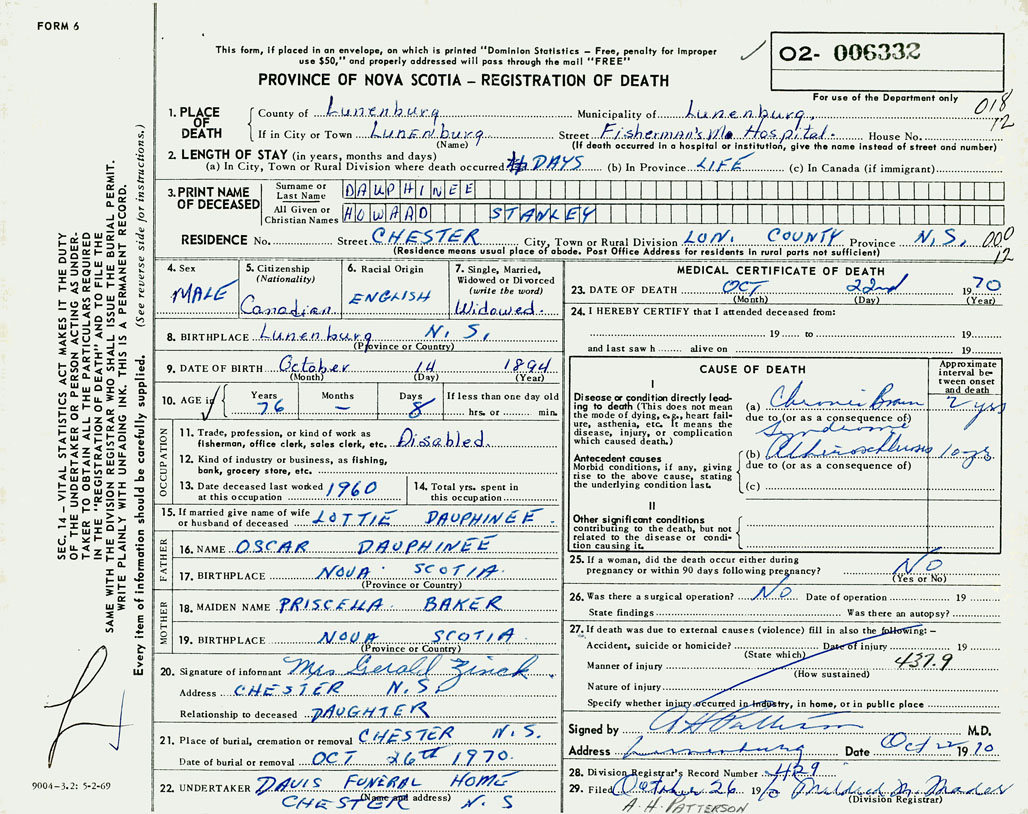 FORM 6
This form, if placed in an envelope, on which is printed "Dominion Statistics – Free, penalty for improper
use $50," and properly addressed will pass through the mail "FREE"
PROVINCE OF NOVA SCOTIA – REGISTRATION OF DEATH
02- 006332
For use of the Department only
018
12
1. PLACE OF DEATH
County of Lunenburg Municipality of Lunenburg.
If in City or Town Lunenburg Street Fisherman's M. Hospital. House No.
(Name) (If death occurred in a hospital or institution, give the name instead of street and number)
2. LENGTH OF STAY (in years, months and days)
(a) In City, Town or Rural Division where death occurred DAYS (b) In Province LIFE (c) In Canada (if immigrant)
3. PRINT NAME OF DECEASED
Surname or Last Name DAUPHINEE
All Given or Christian Names HOWARD STANLEY
RESIDENCE No. Street CHESTER City, Town or Rural Division LUN. COUNTY Province N.S. 000
12
(Residence means usual place of abode. Post Office Address for residents in rural parts not sufficient)
4. Sex MALE
5. Citizenship (Nationality) Canadian
6. Racial Origin ENGLISH
7. Single, Married, Widowed or Divorced (write the word) Widowed.
8. BIRTHPLACE Lunenburg N.S.
(Province or Country)
9. DATE OF BIRTH October 14 1894
(Month) (Day) (Year)
10. AGE in Years 76 Months – Days 8 If less than one day old
hrs. or min.
OCCUPATION
11. Trade, profession, or kind of work as
fisherman, office clerk, sales clerk, etc. Disabled
12. Kind of industry or business, as fishing,
bank, grocery store, etc.
13. Date deceased last worked
at this occupation 1960
14. Total yrs. spent in
this occupation
15. If married give name of wife
or husband of deceased LOTTIE DAUPHINEE.
FATHER
16. NAME OSCAR DAUPHINEE
17. BIRTHPLACE NOVA SCOTIA.
(Province or Country)
MOTHER
18. MAIDEN NAME PRISCELLA BAKER
19. BIRTHPLACE NOVA SCOTIA
(Province or Country)
20. Signature of informant Mrs Gerald Zinck.
Address CHESTER N.S.
Relationship to deceased DAUGHTER
21. Place of burial, cremation or removal CHESTER N.S.
Date of burial or removal OCT 26th 1970.
22. UNDERTAKER DAVIS FUNERAL HOME
(Name and address)
CHESTER N.S
MEDICAL CERTIFICATE OF DEATH
23. DATE OF DEATH OCT 22nd 1970
(Month) (Day) (Year)
24. I HEREBY CERTIFY that I attended deceased from:
19 to 19
and last saw h alive on 19
CAUSE OF DEATH
Approximate interval between onset and death
I
Disease or condition directly leading to death (This does not mean the mode of dying, e.g., heart failure, asthenia, etc. It means the disease, injury, or complication which caused death.)
(a) Chronic Brain 2 yrs
due to (or as a consequence of)
Syndrome
Antecedent causes
Morbid conditions, if any, giving rise to the above cause, stating the underlying condition last.
(b) Atherosclerosis 10 yrs
due to (or as a consequence of)
(c)
II
Other significant conditions
contributing to the death, but not related to the disease or condition causing it.
25. If a woman, did the death occur either during
pregnancy or within 90 days following pregnancy? NO
(Yes or No)
26. Was there a surgical operation? NO Date of operation 19
State findings Was there an autopsy?
27. If death was due to external causes (violence) fill in also the following: –
Accident, suicide or homicide? Date of injury 19
(State which)
Manner of injury 437.9
(How sustained)
Nature of injury
Specify whether injury occurred in industry, in home, or in public place
Signed by A H Patterson M.D.
Address Lunenburg Date Oct 22 1970
28. Division Registrar's Record Number 429
29. Filed October 26 1970 Mildred M. Mader
(Division Registrar)
A. H. PATTERSON
SEC. 14 – VITAL STATISTICS ACT MAKES IT THE DUTY
OF THE UNDERTAKER OR PERSON ACTING AS UNDER-
TAKER TO OBTAIN ALL THE PARTICULARS REQUIRED
IN THE "REGISTRATION OF DEATH" AND TO FILE THE
SAME WITH THE DIVISION REGISTRAR WHO SHALL ISSUE THE BURIAL PERMIT.
WRITE PLAINLY WITH UNFADING INK. THIS IS A PERMANENT RECORD.
Every item of information should be carefully supplied. (See reverse side for instructions.)
9004-3.2: 5-2-69